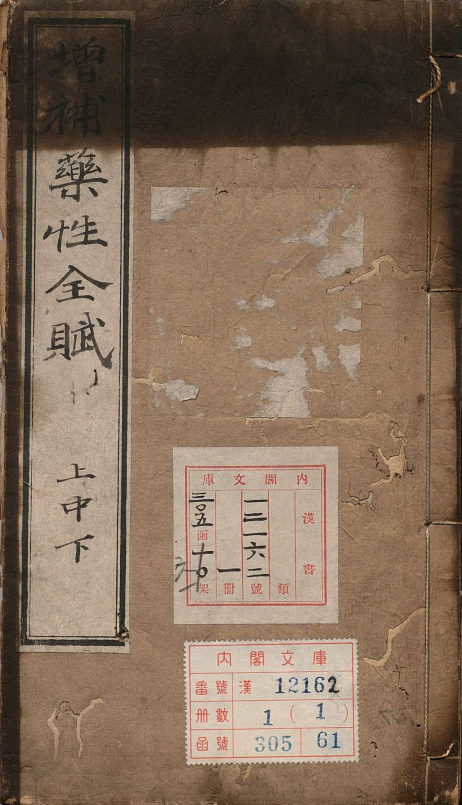 增補藥性全賦
上中下
內閣文庫
漢書
一二一六二號
一冊
三〇五函
架
類
內閣文庫
番號 漢 12162
冊數 1 (1)
函號 305 61